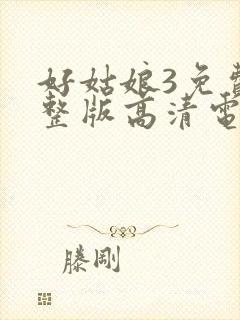 好姑娘3免費
整版高清電
滕剛